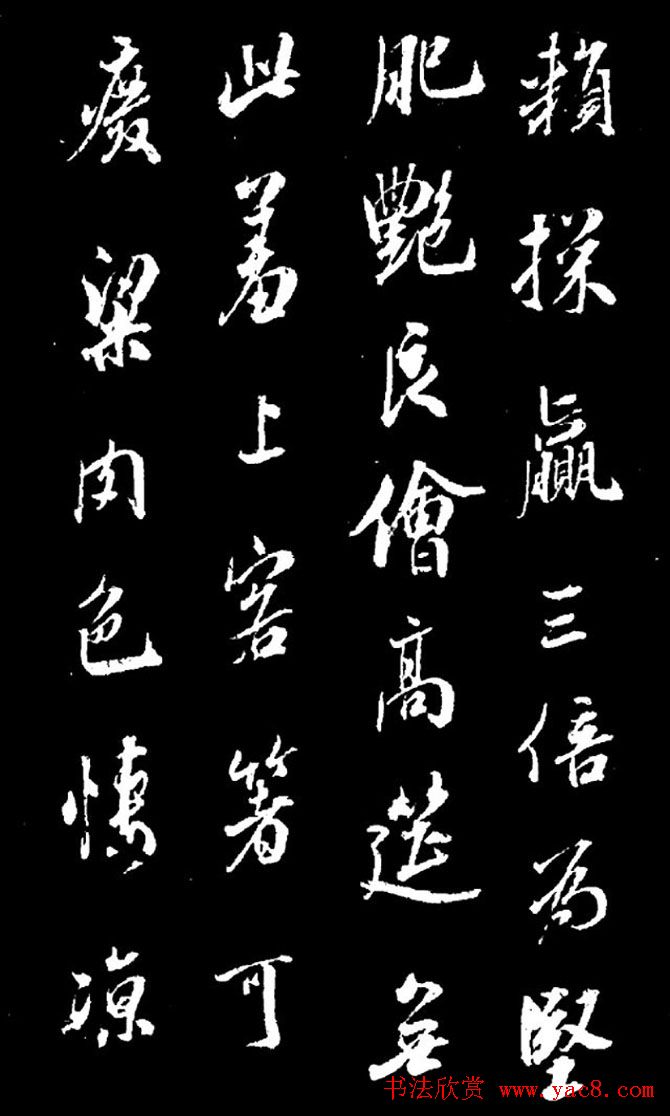 頼採贏三倍為堅
肥艷良儈高筵無
此羞上客箸可
廢梁肉色悽凉
书法欣赏 www.yac8.com